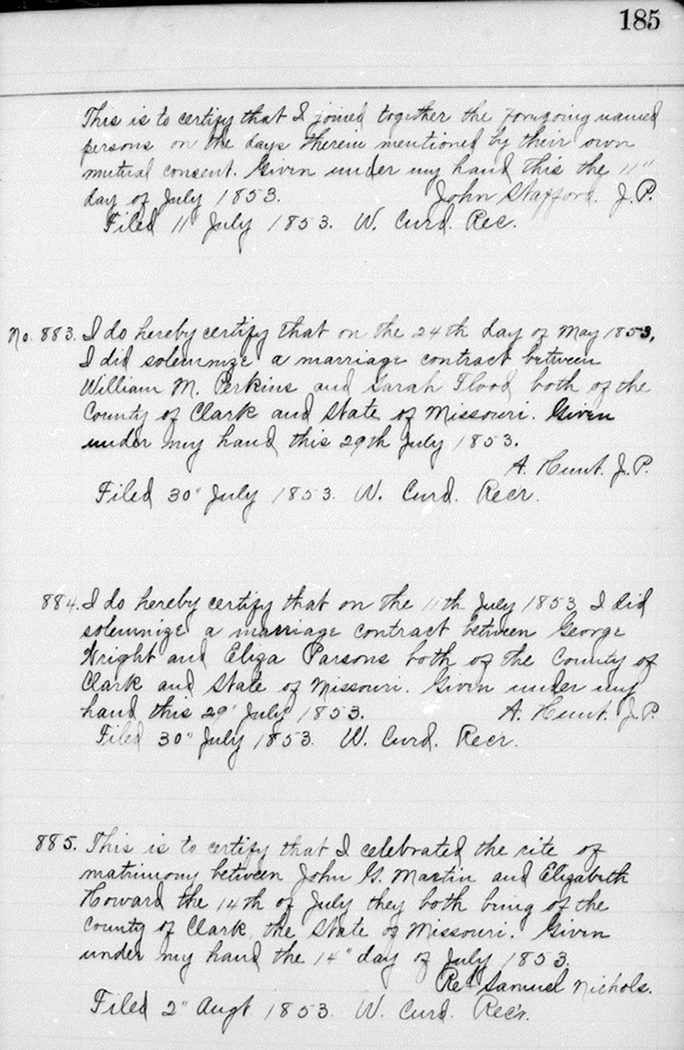 185
This is to certify that I joined together the foregoing named
persons on the days therein mentioned by their own
mutual consent. Given under my hand this the 11"
day of July 1853. John Stafford. J.P.
Filed 11" July 1853. W. Curd. Rec.
No. 883. I do hereby certify that on the 24th day of May 1853,
I did solemnize a marriage contract between
William M. Perkins and Sarah Flood both of the
County of Clark and State of Missouri. Given
under my hand this 29th July 1853.
A. Hunt. J.P.
Filed 30" July 1853. W. Curd. Rec'r.
884. I do hereby certify that on the 11th July 1853 I did
solemnize a marriage contract between George
Wright and Eliza Parsons both of the County of
Clark and State of Missouri. Given under my
hand this 29" July 1853. A. Hunt. J.P.
Filed 30" July 1853. W. Curd. Recr.
885. This is to certify that I celebrated the rite of
matrimony between John G. Martin and Elizabeth
Howard the 14th of July they both being of the
County of Clark the State of Missouri. Given
under my hand the 14" day of July 1853.
Rev Samuel Nichols.
Filed 2" Augt 1853. W. Curd. Rec'r.